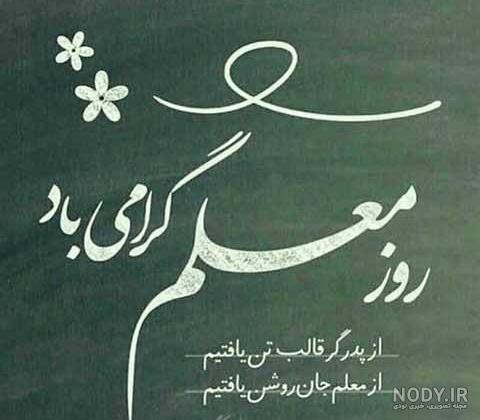 روز معلم گرامی باد
از پدر گر قالب تن یافتیم
از معلم جان روشن یافتیم
NODY.IR
مجله تصویری، خبری نودی